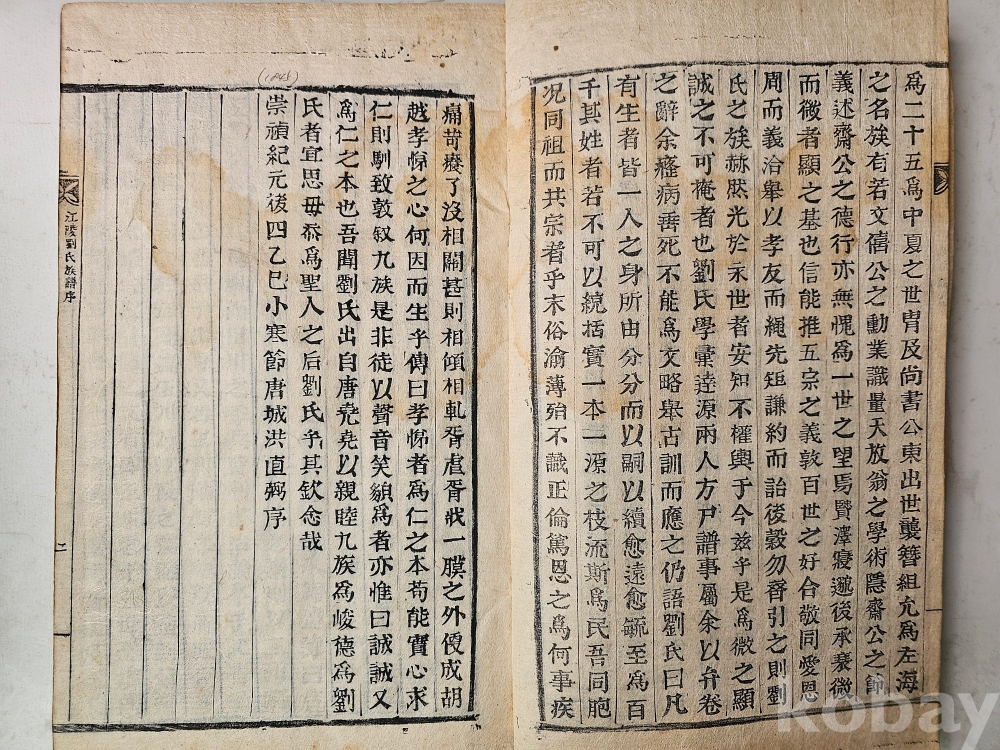 爲二十五爲中夏之世胄及尚書公東出世襲簪組尤爲左海
之名族有若文僖公之勳業識量天放翁之學術隱齋公之節
義述齋公之德行亦無愧爲一世之望焉賢澤寖邈後承衰微
而微者顯之基也信能推五宗之義敦百世之好合敬同愛恩
周而義洽擧以孝友而繩先矩謙約而詒後穀勿替引之則劉
氏之族赫然光於永世者安知不權輿于今玆乎是爲微之顯
誠之不可掩者也劉氏學彙逵源兩人方尸譜事屬余以弁卷
之辭余癃病垂死不能爲文略擧古訓而應之仍語劉氏曰凡
有生者皆一人之身所由分分而以嗣以續愈遠愈毓至爲百
千其姓者若不可以統括實一本一源之枝流斯爲民吾同胞
况同祖而共宗者乎末俗渝薄殆不識正倫篤恩之爲何事疾
痛苛癢了沒相關甚則相傾相軋胥虐胥戕一膜之外便成胡
越孝悌之心何因而生乎傳曰孝悌者爲仁之本苟能實心求
仁則馴致敦敍九族是非徒以聲音笑貌爲者亦惟曰誠誠又
爲仁之本也吾聞劉氏出自唐堯堯以親睦九族爲峻德爲劉
氏者宜思毋忝爲聖人之后劉氏乎其欽念哉
崇禎紀元後四乙巳小寒節唐城洪直弼序
(1845)
江陵劉氏族譜序
二
kobay